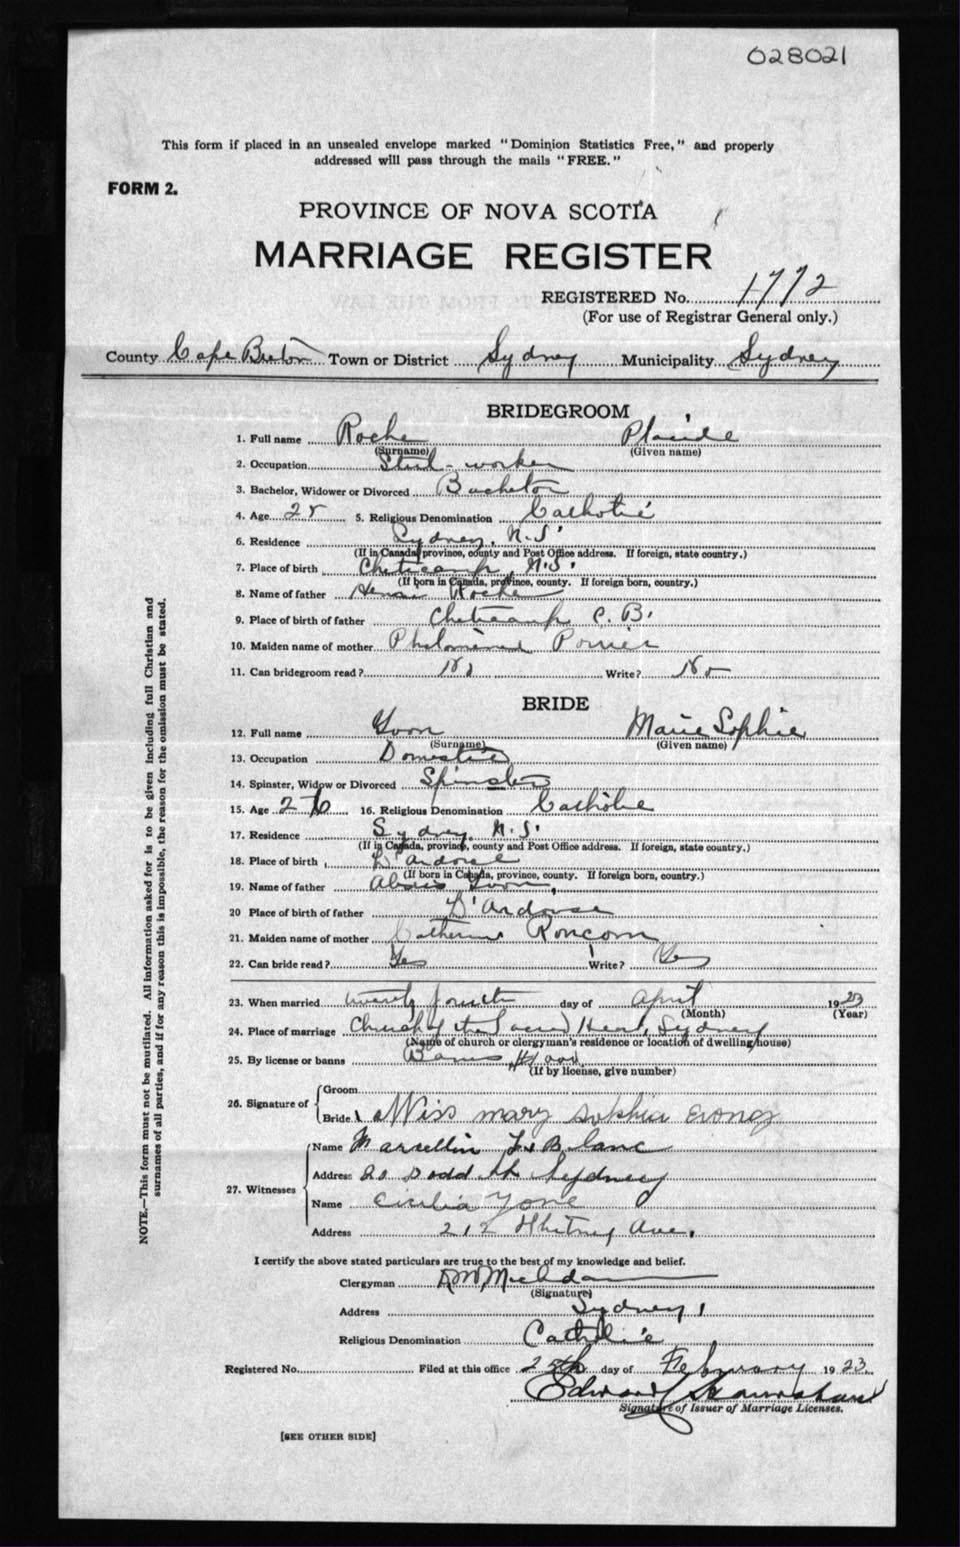 028021
This form if placed in an unsealed envelope marked "Dominion Statistics Free," and properly
addressed will pass through the mails "FREE."
FORM 2.
PROVINCE OF NOVA SCOTIA
MARRIAGE REGISTER
REGISTERED No. 1772
(For use of Registrar General only.)
County Cape Breton Town or District Sydney Municipality Sydney
BRIDEGROOM
1. Full name Roche Placide
(Surname) (Given name)
2. Occupation Steel-worker
3. Bachelor, Widower or Divorced Bachelor
4. Age 5. Religious Denomination Catholic
6. Residence Sydney, N.S.
(If in Canada province, county and Post Office address. If foreign, state country.)
7. Place of birth Cheticamp, N.S.
(If born in Canada, province, county. If foreign born, country.)
8. Name of father Henri Roche
9. Place of birth of father Cheticamp C.B.
10. Maiden name of mother Poirier
11. Can bridegroom read? No Write? No
BRIDE
12. Full name Yvon Marie Sophie
(Surname) (Given name)
13. Occupation Domestic
14. Spinster, Widow or Divorced Spinster
15. Age 26 16. Religious Denomination Catholic
17. Residence Sydney, N.S.
(If in Canada, province, county and Post Office address. If foreign, state country.)
18. Place of birth L'Ardoise
(If born in Canada, province, county. If foreign born, country.)
19. Name of father Yvon
20 Place of birth of father L'Ardoise
21. Maiden name of mother Catherine
22. Can bride read? Yes Write? Yes
23. When married twenty fourth day of April 1923
(Month) (Year)
24. Place of marriage Church of the Sacred Heart, Sydney
(Name of church or clergyman's residence or location of dwelling house)
25. By license or banns Banns
(If by license, give number)
26. Signature of
Groom
Bride Miss mary sophia
27. Witnesses
Name Marcellin LeBlanc
Address 20 Dodd St Sydney
Name Cecilia Yone
Address 212 Whitney Ave.
I certify the above stated particulars are true to the best of my knowledge and belief.
Clergyman
(Signature)
Address Sydney
Religious Denomination Catholic
Registered No. Filed at this office 25th day of February 1923
Edward
Signature of Issuer of Marriage Licenses.
[SEE OTHER SIDE]
NOTE.—This form must not be mutilated. All information asked for is to be given including full Christian and
surnames of all parties, and if for any reason this is impossible, the reason for the omission must be stated.